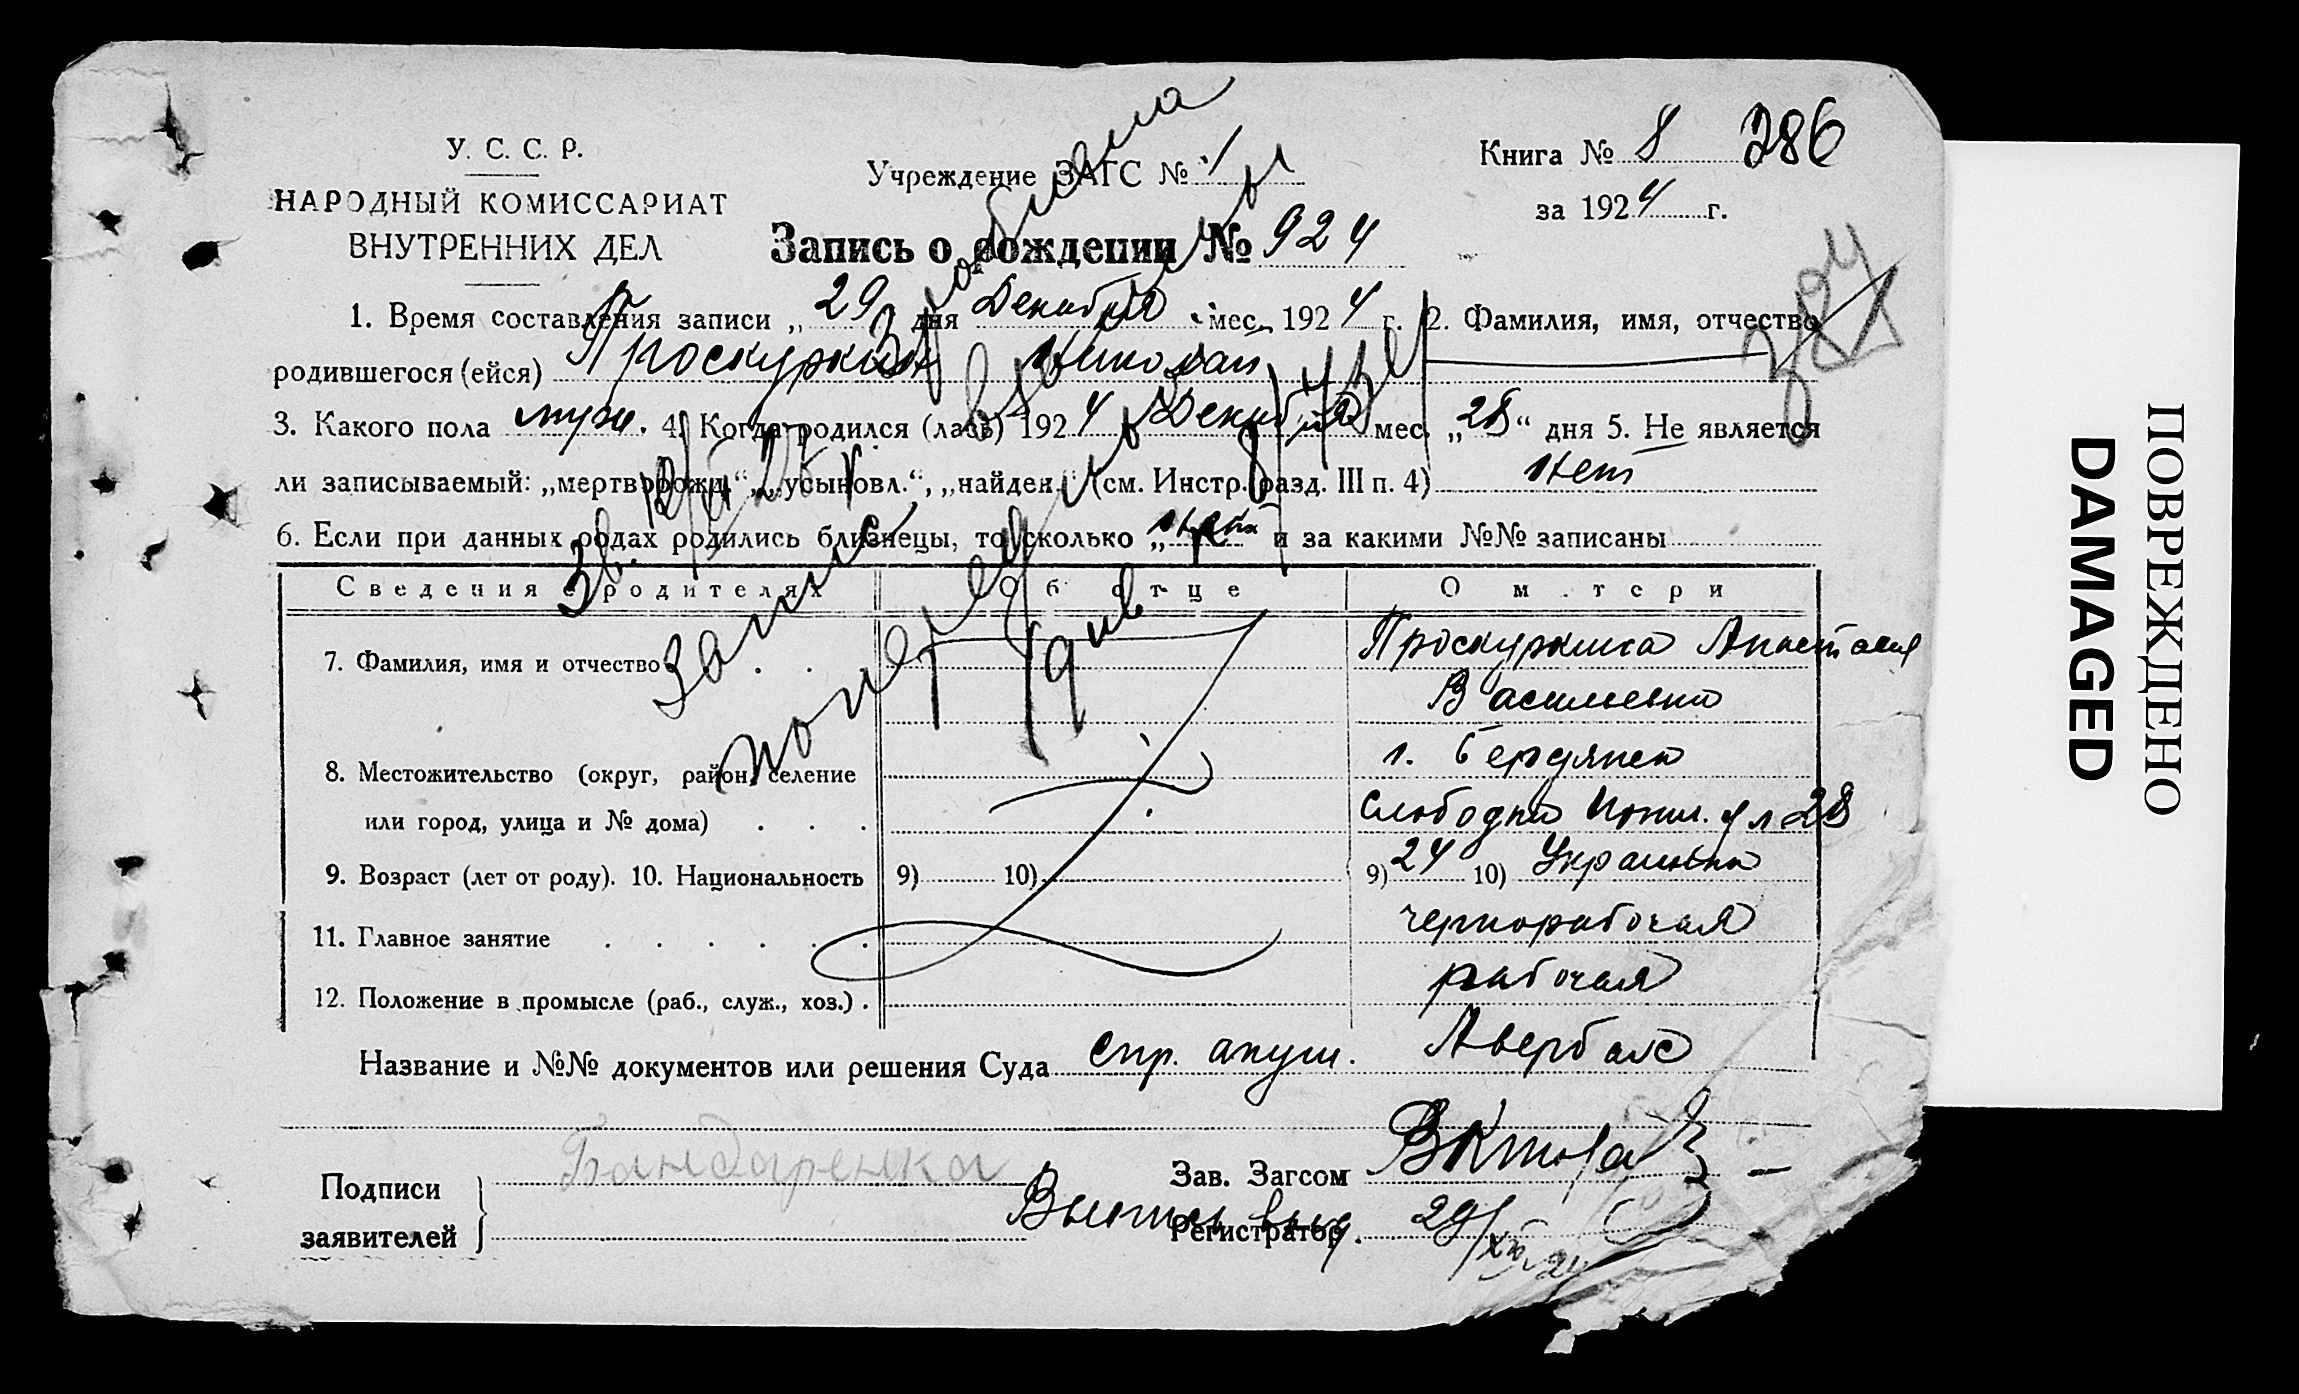 У. С. С. Р.
НАРОДНЫЙ КОМИССАРИАТ
ВНУТРЕННИХ ДЕЛ
Учреждение ЗАГС № 1
Книга № 8 286
за 1924 г.
Запись о рождении № 924
1. Время составления записи „29 дня Декабря мес. 1924 г. 2. Фамилия, имя, отчество
родившегося (ейся) Проскуркин Николай
3. Какого пола муж. 4. Когда родился (лась) 1924 Декабря мес. „28“ дня 5. Не является
ли записываемый: „мертворожд.“, „усыновл.“, „найден.“ (см. Инстр. разд. III п. 4) нет
6. Если при данных родах родились близнецы, то сколько „нет“ и за какими №№ записаны
Сведения о родителях Об отце О матери
7. Фамилия, имя и отчество Проскуркина Анастасия
Васильевна
8. Местожительство (округ, район, селение г. Бердянск
или город, улица и № дома) Слободка 28
9. Возраст (лет от роду). 10. Национальность 9) 10) 9) 24 10) Украинка
11. Главное занятие чернорабочая
12. Положение в промысле (раб., служ., хоз.) рабочая
Название и №№ документов или решения Суда Спр. акуш. Авербах
Подписи
заявителей
Бандаренка
Зав. Загсом
Выпись выд.
Регистратор 29/XII 24
ПОВРЕЖДЕНО
DAMAGED